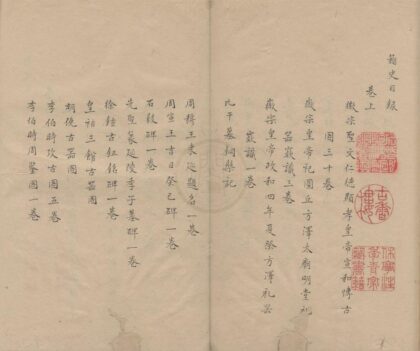 籀史目錄
卷上
徽宗聖文仁德顯孝皇帝宣和博古
圖三十卷
徽宗皇帝祀圜丘方澤太廟明堂禮
器款識三卷
徽宗皇帝政和四年夏祭方澤禮器
款識一卷
比干墓銅槃記
周穆王東巡題名一卷
周宣王吉日癸巳碑一卷
石鼓碑一卷
先聖篆延陵季子墓碑一卷
徐鉉古鉦銘碑一卷
皇祐三館古器圖
胡俛古器圖
李伯時攷古圖五卷
李伯時周鑒圖一卷